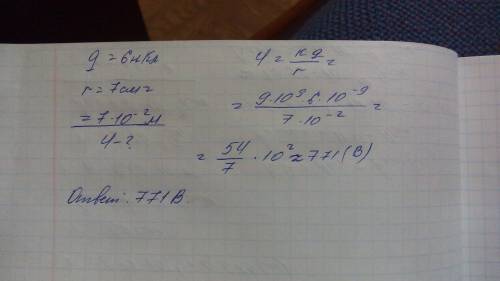 q = 6нКл
r = 7см =
= 7·10⁻²м
φ - ?
φ = kq/r =
= 9·10⁹·6·10⁻⁹ / 7·10⁻² =
= 54/7 · 10² ≈ 771 (В)
Ответ: 771 В.